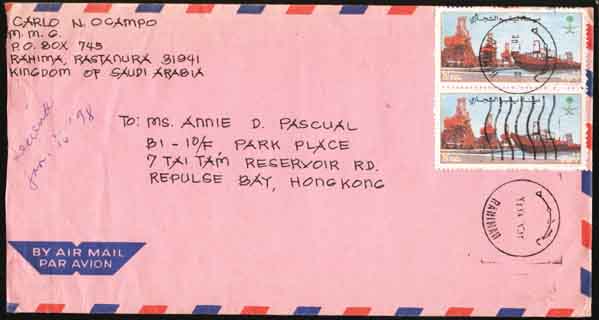 CARLO N. OCAMPO
M.M.G.
P.O. BOX 745
RAHIMA, RASTANURA 31941
KINGDOM OF SAUDI ARABIA
TO: MS. ANNIE D. PASCUAL
B1-10/F, PARK PLACE
7 TAI TAM RESERVOIR RD.
REPULSE BAY, HONGKONG
Jan. '98
BY AIR MAIL
PAR AVION
RAHIMAH